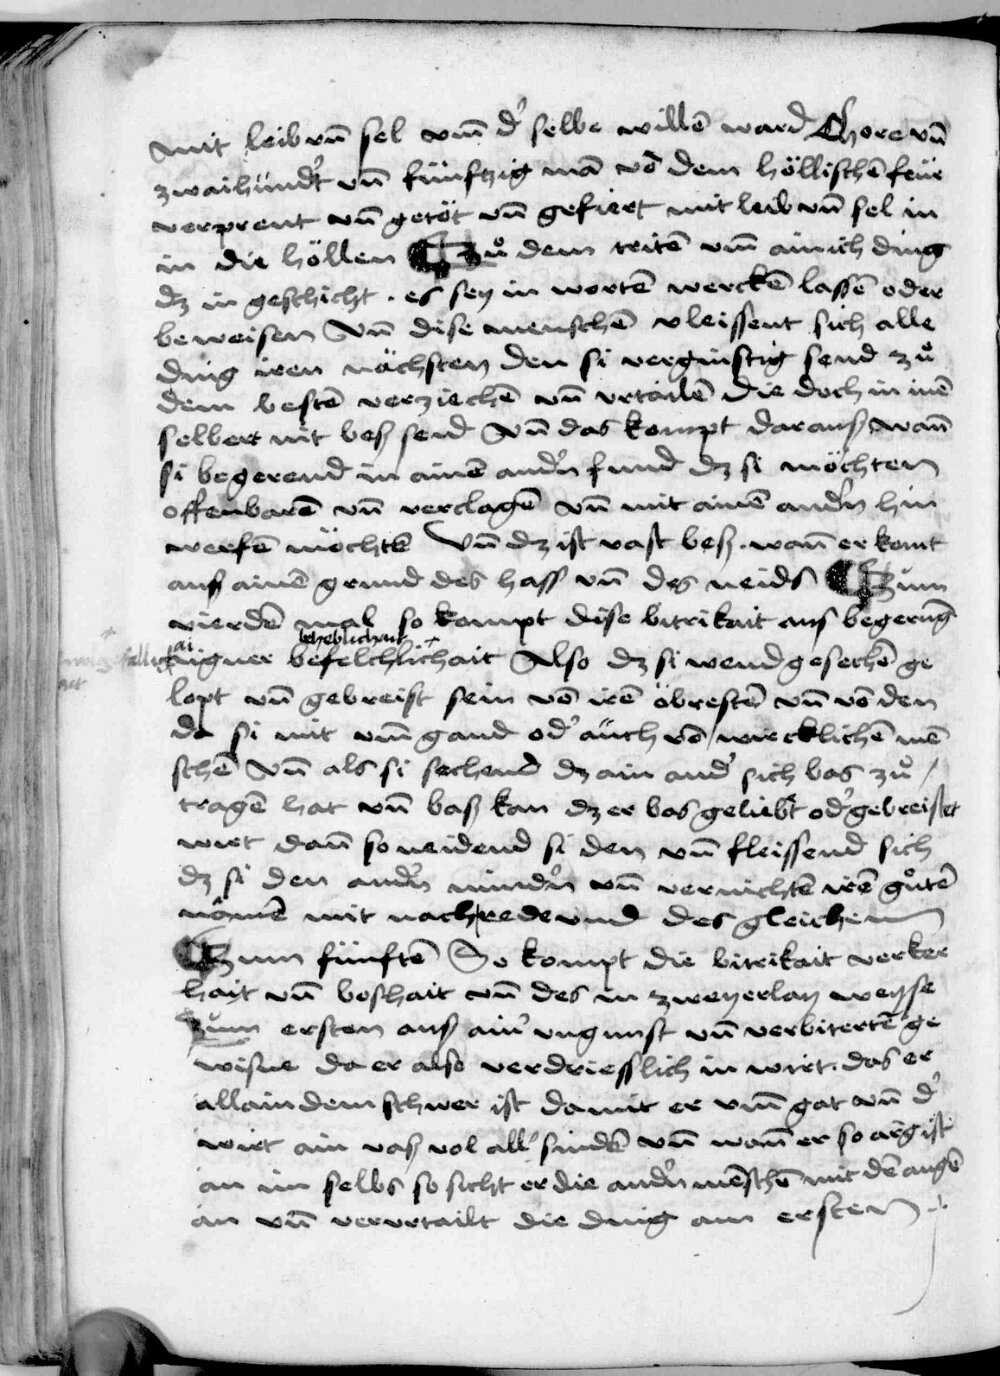 mit leib vn̄ sel vm̄ d' selbe willē ward Chore vn̄
zwaihund't vn̄ fünftzig mā vō dem höllischē feür
verprent vn̄ getöt vn̄ gefiert mit leib vn̄ sel in
in die höllen Zů dem tritē vm̄ ainich ding
dz in geschicht . es sey in wortē werckē lassē oder
beweisen Vn̄ dise menschē vleissent sich alle
ding iren nächsten den si verginstig send zů
dem bestē verziechē vn̄ vrtailē die doch in inē
selbert nit bes send Vn̄ das kompt daraus wan̄
si begerend in ainē and'n fund dz si möchten
offenbarē vn̄ verclagē vn̄ mit ainē and'n hin
werfē möchtē Vn̄ dz ist vast bes . wan̄ er komt
aus ainē grund des hass vn̄ des neids Zum
vierdē mal so kompt dise bitrikait aus begerūg
aigner befelchlichait Also dz si wend gesechē ge
lopt vn̄ gebreist sein vō irē öbrestē vn̄ vō den
da si mit vm̄ gand od' auch vō wircklichē mē
schē Vn̄ als si sechend dz ain and' sich bas zů
tragē hat vn̄ bas kan dz er bas geliebt od' gebreistet
wirt dan̄ so neidend si den vn̄ fleissend sich
dz si den and'n mind'n vn̄ vernichtē irē gůtē
namē mit nachrede vnd des gleichenn
Zum fünftē So kompt die bitrikait verker
hait vn̄ boshait vn̄ des in zweyerlay weyse
zum ersten aus ain' vngunst vn̄ verbitertē ge
wisne da er also verdriesslich in wirt . das er
allain dem schwer ist da mit er vm̄ gat vn̄ d'
wirt ain vas vol all' sindē vn̄ wan̄ er so arg ist
an im selbs so sicht er die and'n mēschē mit dē augē
an vn̄ vervrtailt die ding am ersten